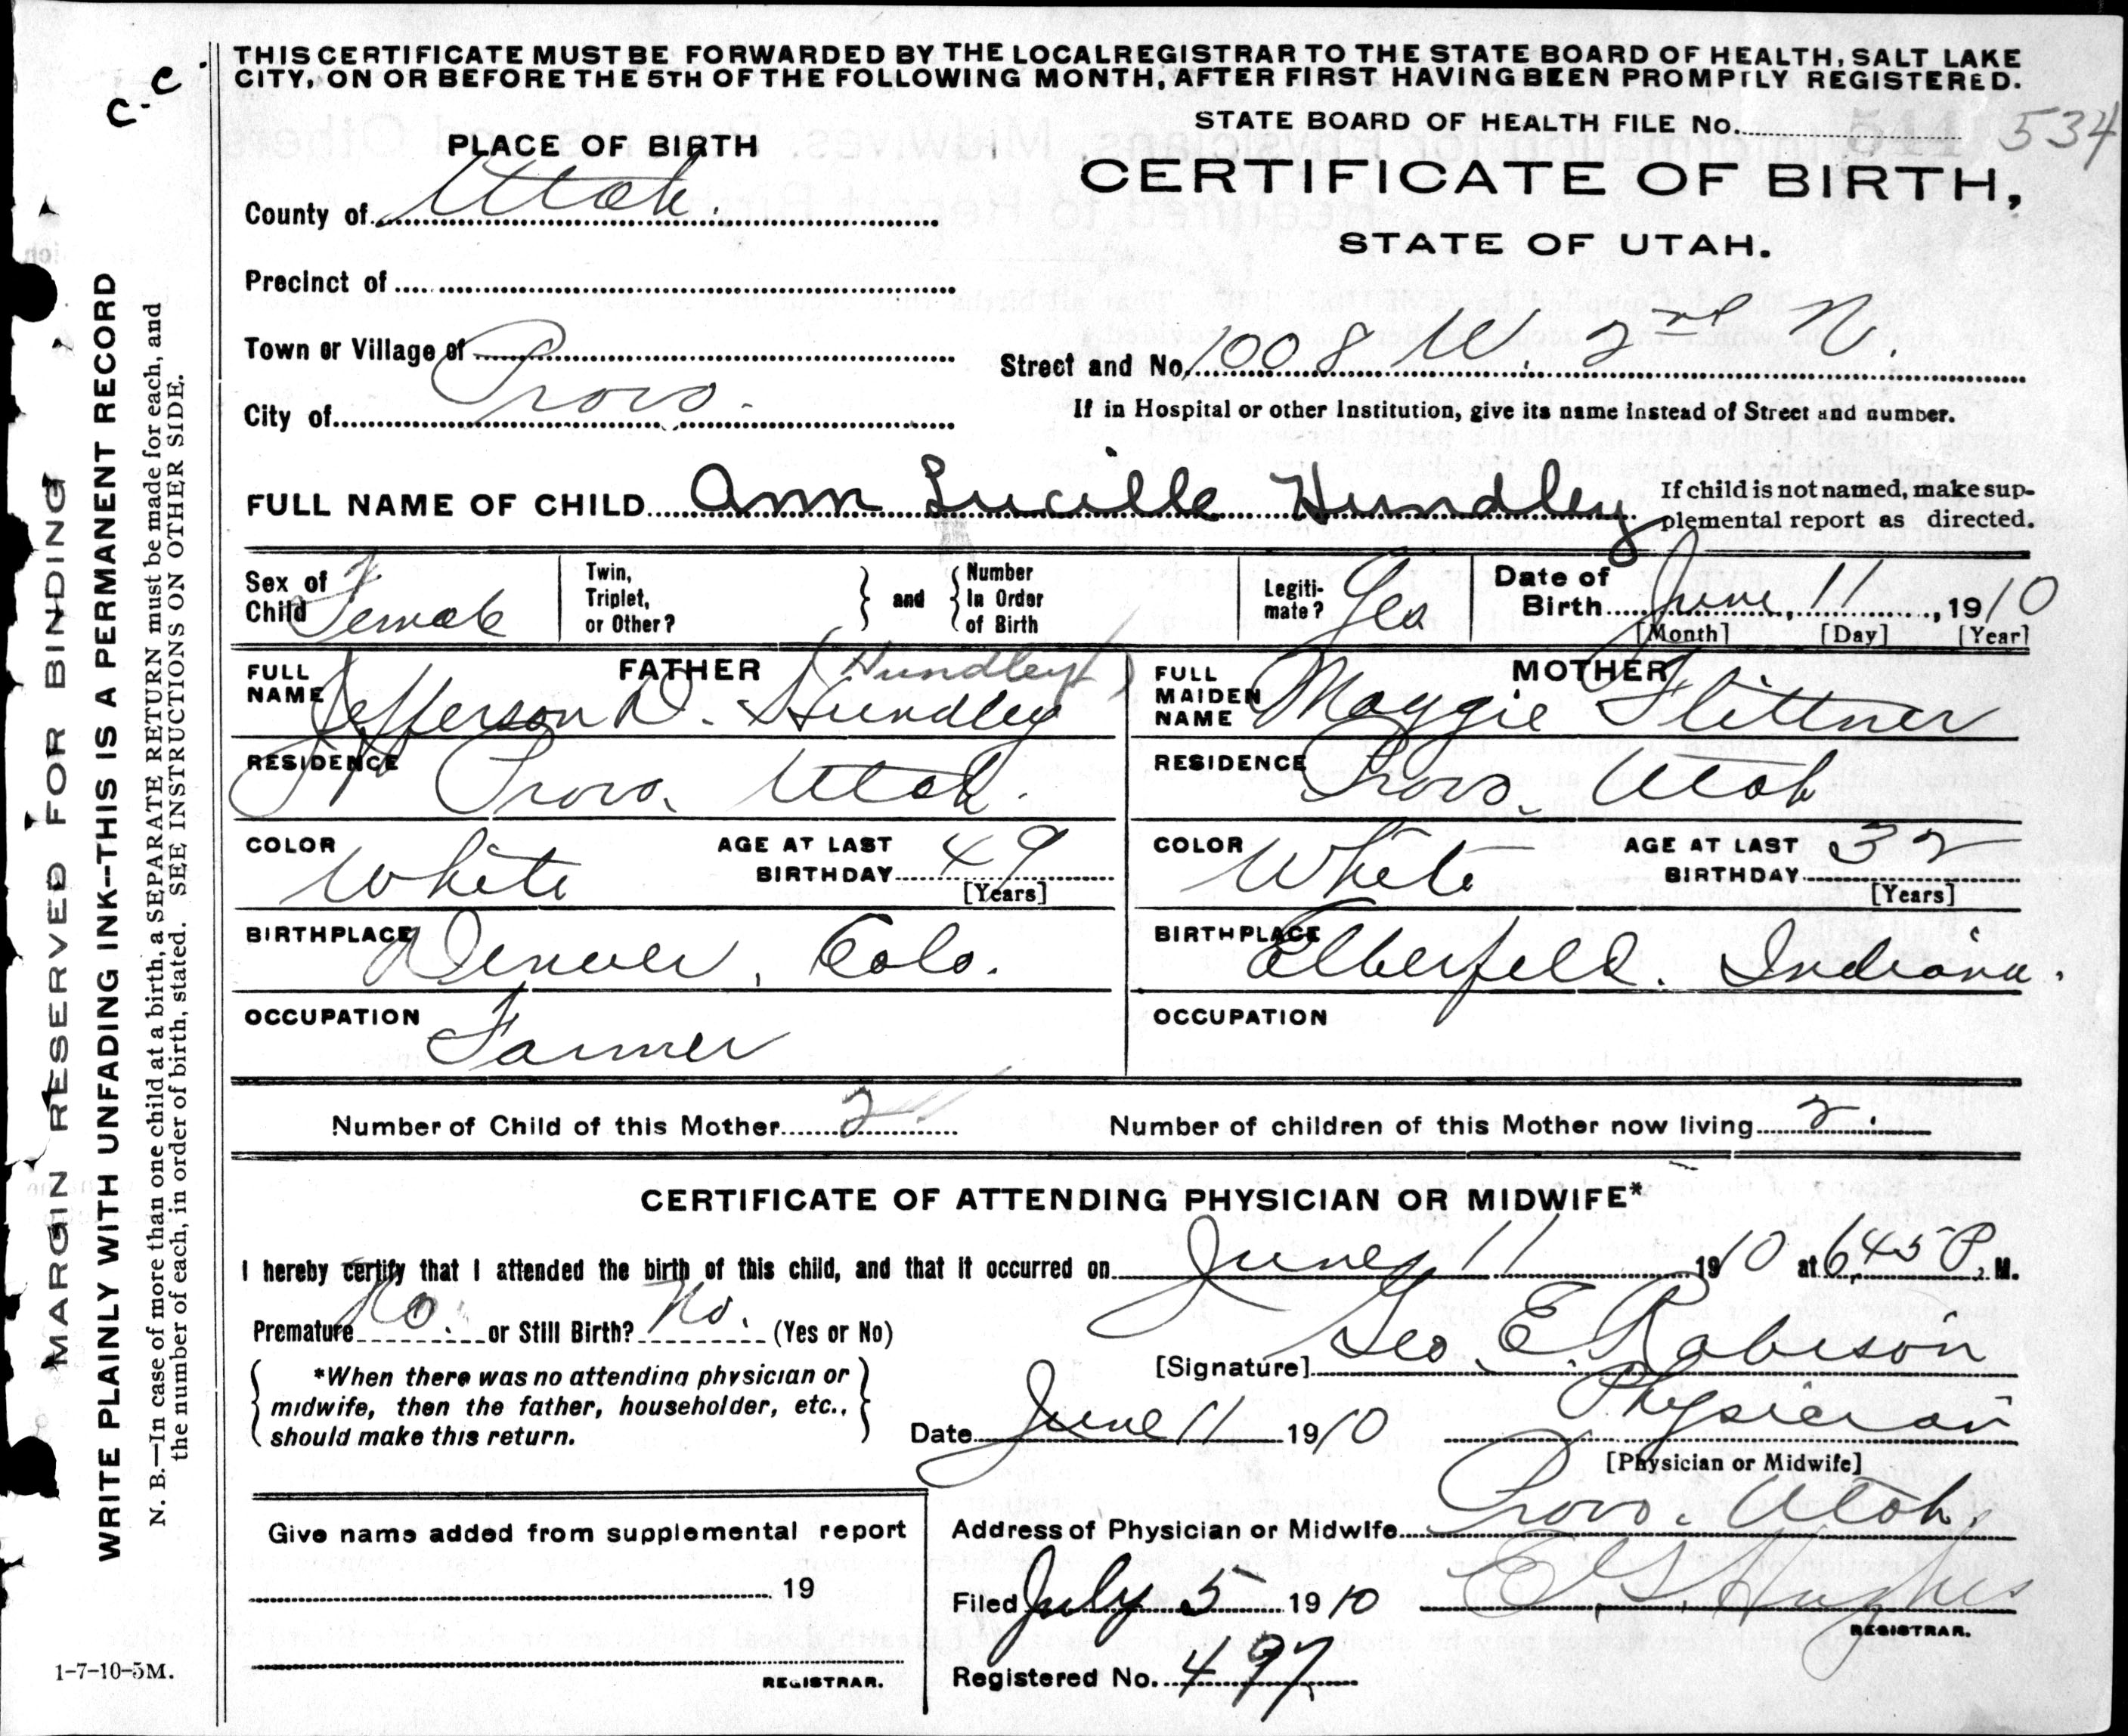 THIS CERTIFICATE MUST BE FORWARDED BY THE LOCAL REGISTRAR TO THE STATE BOARD OF HEALTH, SALT LAKE
CITY, ON OR BEFORE THE 5TH OF THE FOLLOWING MONTH, AFTER FIRST HAVING BEEN PROMPTLY REGISTERED.
c. c.
STATE BOARD OF HEALTH FILE No. 511 534
PLACE OF BIRTH
CERTIFICATE OF BIRTH,
STATE OF UTAH.
County of Utah.
Precinct of
Town or Village of
Street and No. 1008 W. 2nd N.
City of Provo.
If in Hospital or other Institution, give its name instead of Street and number.
FULL NAME OF CHILD Ann Lucille Hundley
If child is not named, make sup-
plemental report as directed.
Sex of Child Female
Twin, Triplet, or Other? } and { Number In Order of Birth
Legiti-mate? Yes
Date of Birth June, 11, 1910
[Month] [Day] [Year]
FATHER (Hundley)
FULL NAME Jefferson D. Hundley
MOTHER
FULL MAIDEN NAME Maggie Flittner
RESIDENCE Provo, Utah.
RESIDENCE Provo, Utah
COLOR White AGE AT LAST BIRTHDAY 49 [Years]
COLOR White AGE AT LAST BIRTHDAY 32 [Years]
BIRTHPLACE Denver, Colo.
BIRTHPLACE Elberfeld. Indiana.
OCCUPATION Farmer
OCCUPATION
Number of Child of this Mother 2 Number of children of this Mother now living 2.
CERTIFICATE OF ATTENDING PHYSICIAN OR MIDWIFE*
I hereby certify that I attended the birth of this child, and that it occurred on June, 11 1910 at 6,45 P. M.
Premature No. or Still Birth? No. (Yes or No)
[Signature] Geo. E. Robison
*When there was no attending physician or
midwife, then the father, householder, etc.,
should make this return.
Date June 11 1910
Physician
[Physician or Midwife]
Give name added from supplemental report
19
REGISTRAR.
Address of Physician or Midwife Provo. Utah.
Filed July 5 1910 E. G. Hughes
REGISTRAR.
Registered No. 497
1-7-10-5M.
MARGIN RESERVED FOR BINDING
WRITE PLAINLY WITH UNFADING INK--THIS IS A PERMANENT RECORD
N. B.—In case of more than one child at a birth, a SEPARATE RETURN must be made for each, and
the number of each, in order of birth, stated. SEE INSTRUCTIONS ON OTHER SIDE.